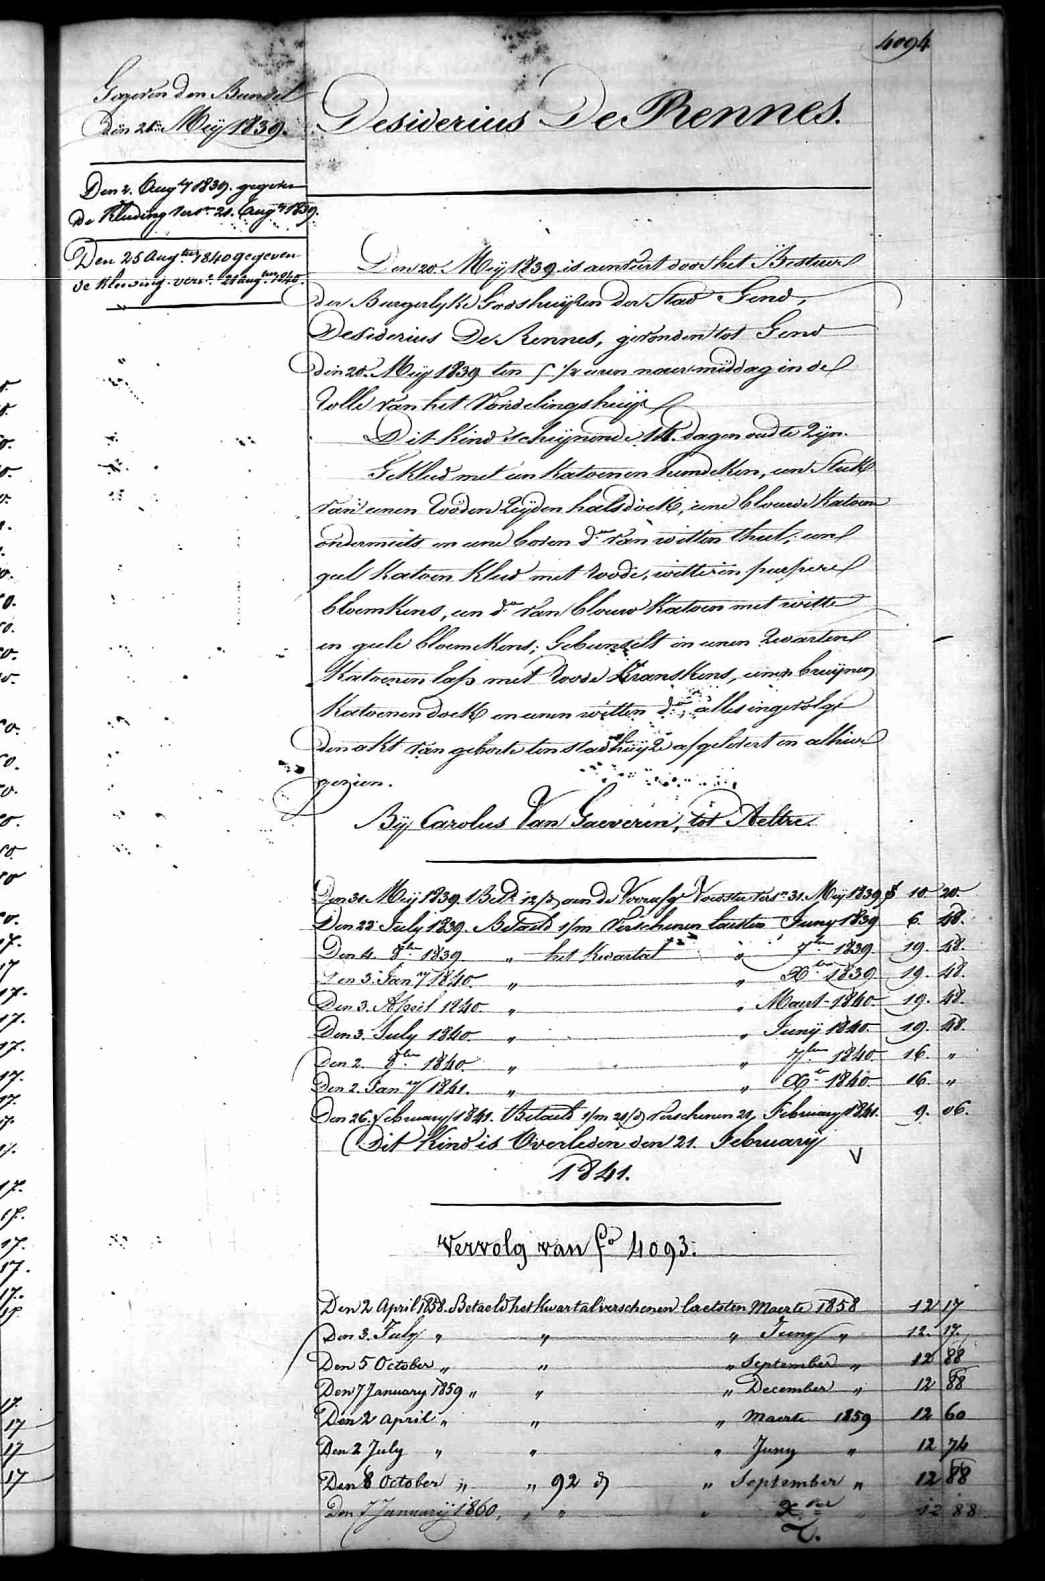 4094
Gegeven den Bundel
den 21 Meij 1839.
Den 2. Augt 1839. gegeven
De Kleeding vers. 21. Augt 1839.
Den 25 Augten 1840 gegeven
de kleeding. vers. 21 augten 1840.
Desiderius De Rennes.
Den 20. Meij 1839 is aenveert door het Bestuer
der Burgerlyke Godshuijzen der Stad Gend,
Desiderius De Rennes, gevonden tot Gend
den 20. Meij 1839 ten 1/2 uren naer middag in de
Rolle van het Vondelingshuijs
Dit Kind schijnende 14 dagen oud te Zijn.
Gekleed met een Katoenen hemdeken, een Stuk
van eenen Rooden Zijden halsdoek, eene blouwe Katoen
ondermuts en eene boven do van witten thul, een
geel Katoen Kleed met roode, witte en purpere
bloemkens, een do van blouw Katoen met witte
en geele bloemekens; Gebunselt in eenen Zwarten
Katoenen lap met roode Kranskens, eenen bruijnen
Katoenen doek en eenen witten do, alles ingevolge
den akt van geboorte ten stadhuijze afgelevert en alhier
gezien.
Bij Carolus Van Gaeveren, tot Aeltre.
Den 31 Meij 1839 Bet. 12/d aen de Voorsz. Voedster vers. 31. Meij 1839 f 10 20
Den 22 July 1839. Betaeld 1/m Verschenen laetsten Juny 1839 6. 48.
Den 4. 8ber 1839 " het Kwartal " 7ber 1839 19. 48.
Den 3. Jany 1840. " " Xber 1839 19. 48.
Den 3. April 1840. " " Maert 1840 19. 48.
Den 3. July 1840. " " Junij 1840. 19. 48.
Den 2. 8ber 1840. " " 7ber 1840. 16. "
Den 2. Jany 1841. " " Xber 1840 16. "
Den 26. February 1841. Betaeld 1/m 21/d verschenen 21, February 1841. 9. 06.
(Dit Kind is Overleden den 21. Februarij
1841.
V
Vervolg van fo 4093.
Den 2 April 1858. Betaeld het kwartal verschenen laetsten Maerte 1858 12 17
Den 3. July " " " Juny " 12. 17.
Den 5 October " " " September " 12 88
Den 7 January 1859 " " " December " 12 88
Den 2 April " " " Maerte 1859 12 60
Den 2 July " " " Juny " 12 74
Den 8 October " " 92 d " September " 12 88
Den 7 Januarij 1860, " " " Xber " 12 88